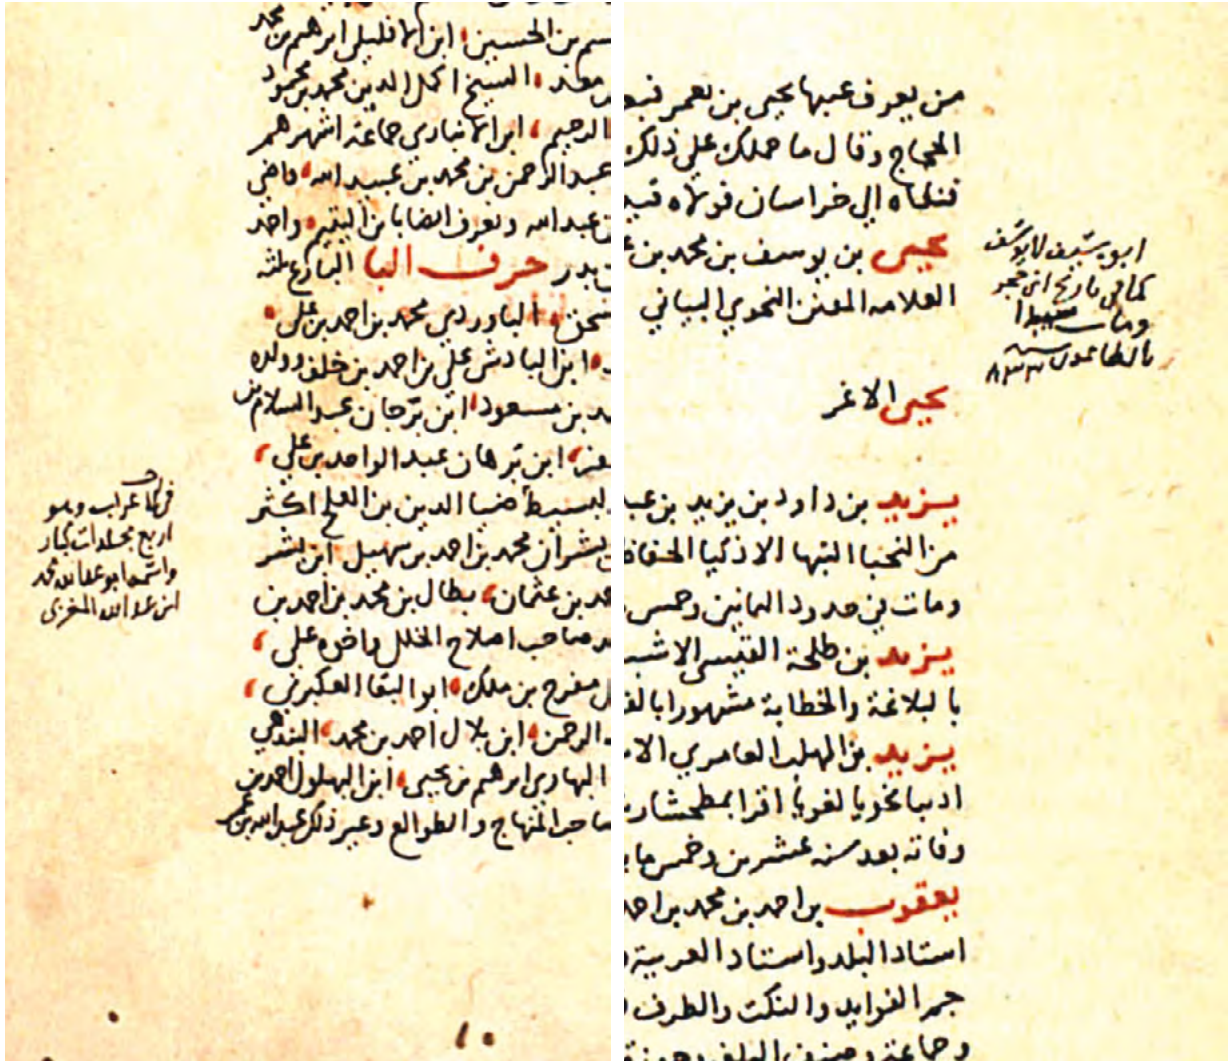 من يعرف عيبها يحيى بن يعمر فبعث
الحجاج وقال ما حملك على ذلك
فنفاه الى خراسان فولاه قتيبة
يحيى بن يوسف بن محمد بن
العلامه المفنن النحوي البياني
يحيى الاغر
يزيد بن داود بن يزيد بن عبد
من النجبا النبها الاذكيا الحفاظ
ومات في حدود الثمانين وخمس
يزيد بن طلحة القيسي الاشبيلي
بالبلاغة والخطابة مشهورا
يزيد بن المهلب العامري
اديبا نحويا لغويا اقرا
وفاته بعد سنه عشرين وخمس
يعقوب بن احمد بن محمد بن احمد
استاد البلد واستاد العربية
جم الفوايد والنكت والطرف
ابو سيف لا يوسف
كما في تاريخ ابن حجر
ومات
بالطاعون سنه ٨٣٣
بن الحسين ابن الافليلي ابرهيم بن محمد
الشيخ اكمل الدين محمد بن محمود
الرحيم ابن الانباري جماعة اشهرهم
عبد الرحمن بن محمد بن عبيد الله
بن عبد الله ويعرف ايضا بابن اليتيم واحمد
بدر حرف البا البارع ثلثه
الباوردي محمد بن احمد بن علي
ابن الباذش علي بن احمد بن خلف وولده
بن مسعود ابن برجان عبد السلام بن
ابن برهان عبد الواحد بن علي
البسيط ضيا الدين بن العلج اكثر
بشران محمد بن احمد بن سهيل ابن بشر
احمد بن عثمان بطال بن محمد بن احمد بن
صاحب اصلاح الخلل واخوه علي
مفرج بن ملك ابو البقا العكبري
الرحمن ابن بلال احمد بن محمد البندهي
البهاري ابرهيم بن يحيى ابن البهلول احمد بن
صاحب المنهاج والطوالع وغير ذلك عبد الله بن عمر
اربع مجلدات كبار
واسمه ابو عبد الله محمد
ابن عبد الله المغربي